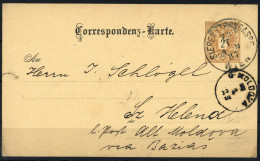 Correspondenz-Karte.
2
An
Herrn J. Schlögel
Sz Helena
Post Alt Moldova
via Bazias
MOLDOVA